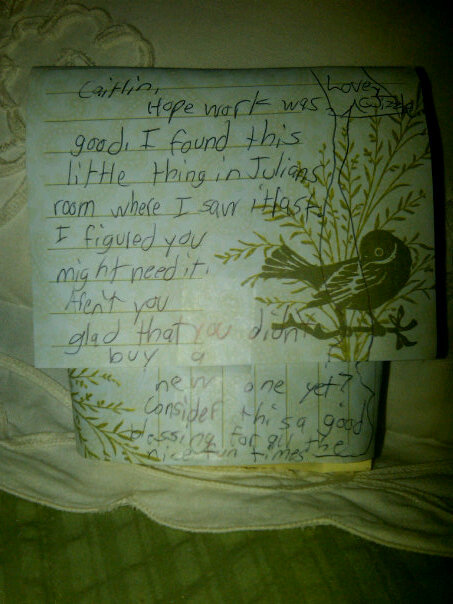 Caitlin,
Hope work was
good. I found this
little thing in Julians
room where I saw it last.
I figured you
might need it.
Aren't you
glad that you didn't
buy a
new one yet?
Consider this a good
for all the
nice fun times
Love,